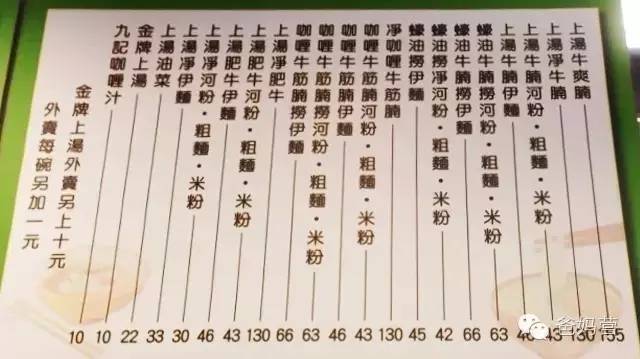 上湯牛爽腩 155
上湯凈牛腩 130
上湯牛腩河粉・粗麵・米粉 43
上湯牛腩伊麵 46
蠔油牛腩撈河粉・粗麵・米粉 63
蠔油牛腩撈伊麵 66
蠔油撈凈河粉・粗麵・米粉 42
蠔油撈伊麵 45
凈咖喱牛筋腩 130
咖喱牛筋腩河粉・粗麵・米粉 43
咖喱牛筋腩伊麵 46
咖喱牛筋腩撈河粉・粗麵・米粉 63
咖喱牛筋腩撈伊麵 66
上湯凈肥牛 130
上湯肥牛河粉・粗麵・米粉 43
上湯肥牛伊麵 46
上湯凈河粉・粗麵・米粉 30
上湯凈伊麵 33
上湯油菜 22
金牌上湯 10
九記咖喱汁 10
金牌上湯外賣另上十元
外賣每碗另加一元
爸妈营